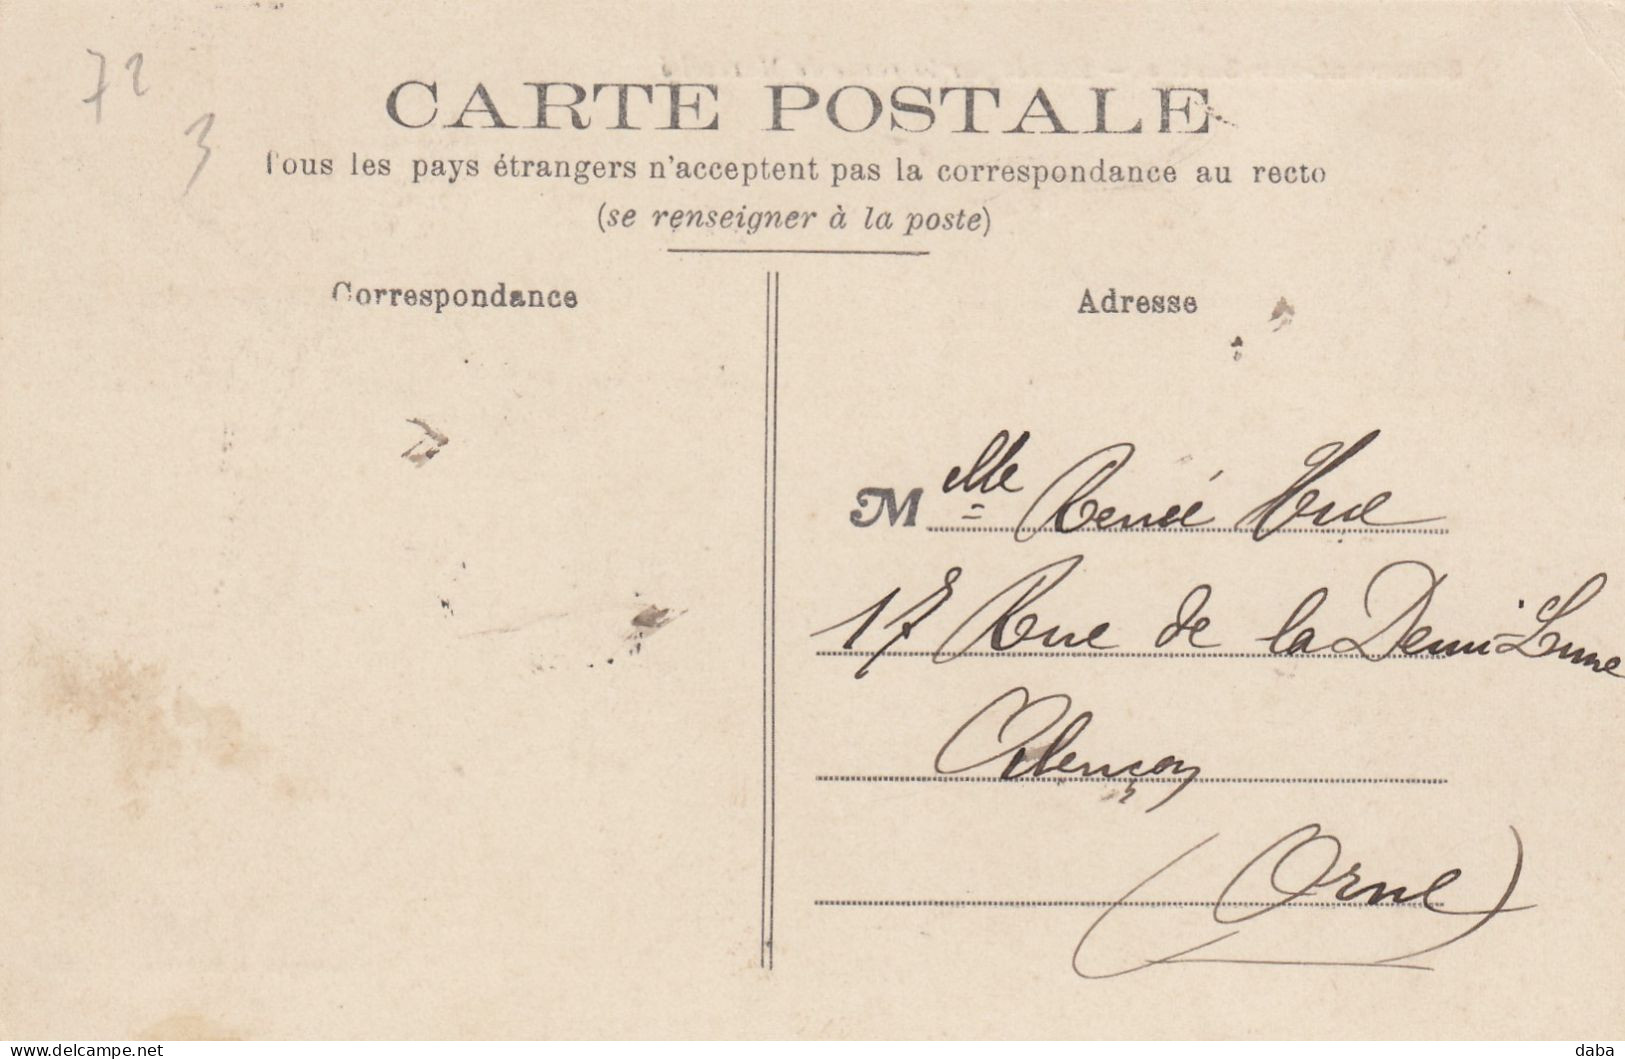 72
3
CARTE POSTALE
Tous les pays étrangers n'acceptent pas la correspondance au recto
(se renseigner à la poste)
Correspondance
Adresse
Melle Renée Hue
17 Rue de la Demi-Lune
Alençon
(Orne)
www.delcampe.net
daba